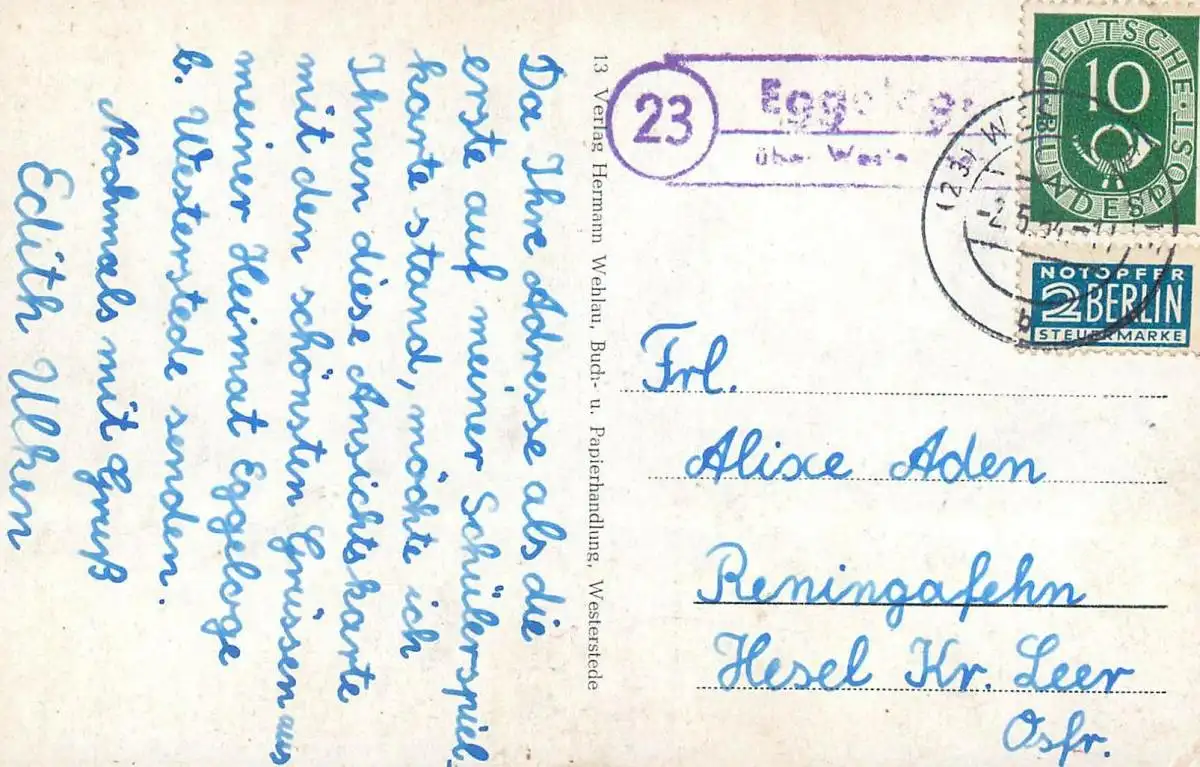 Da Ihre Adresse als die
erste auf meiner Schülerspiel-
karte stand, möchte ich
Ihnen diese Ansichtskarte
mit den schönsten Grüssen aus
meiner Heimat Eggeloge
b. Westerstede senden.
Nochmals mit Gruß
Edith Ulken
13 Verlag Hermann Wehlau, Buch- u. Papierhandlung, Westerstede
23
über
(23) W
-2.5.54.-11
b
DEUTSCHE BUNDESPOST
10
NOTOPFER
2 BERLIN
STEUERMARKE
Frl.
Alixe Aden
Reningafehn
Hesel Kr. Leer
Osfr.